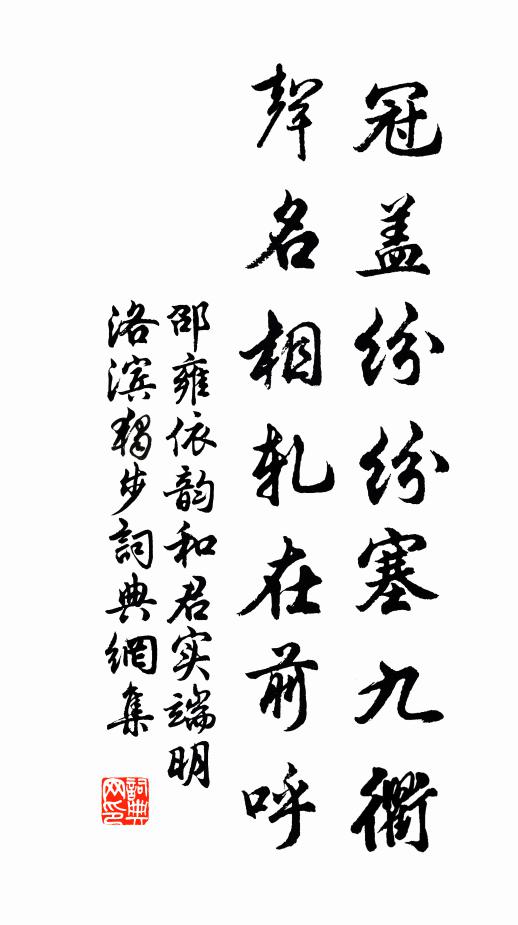 冠盖纷纷塞九衢
声名相轧在前呼
邵雍依韵和君实端明
洛滨獨步詞典網集
詞典网印